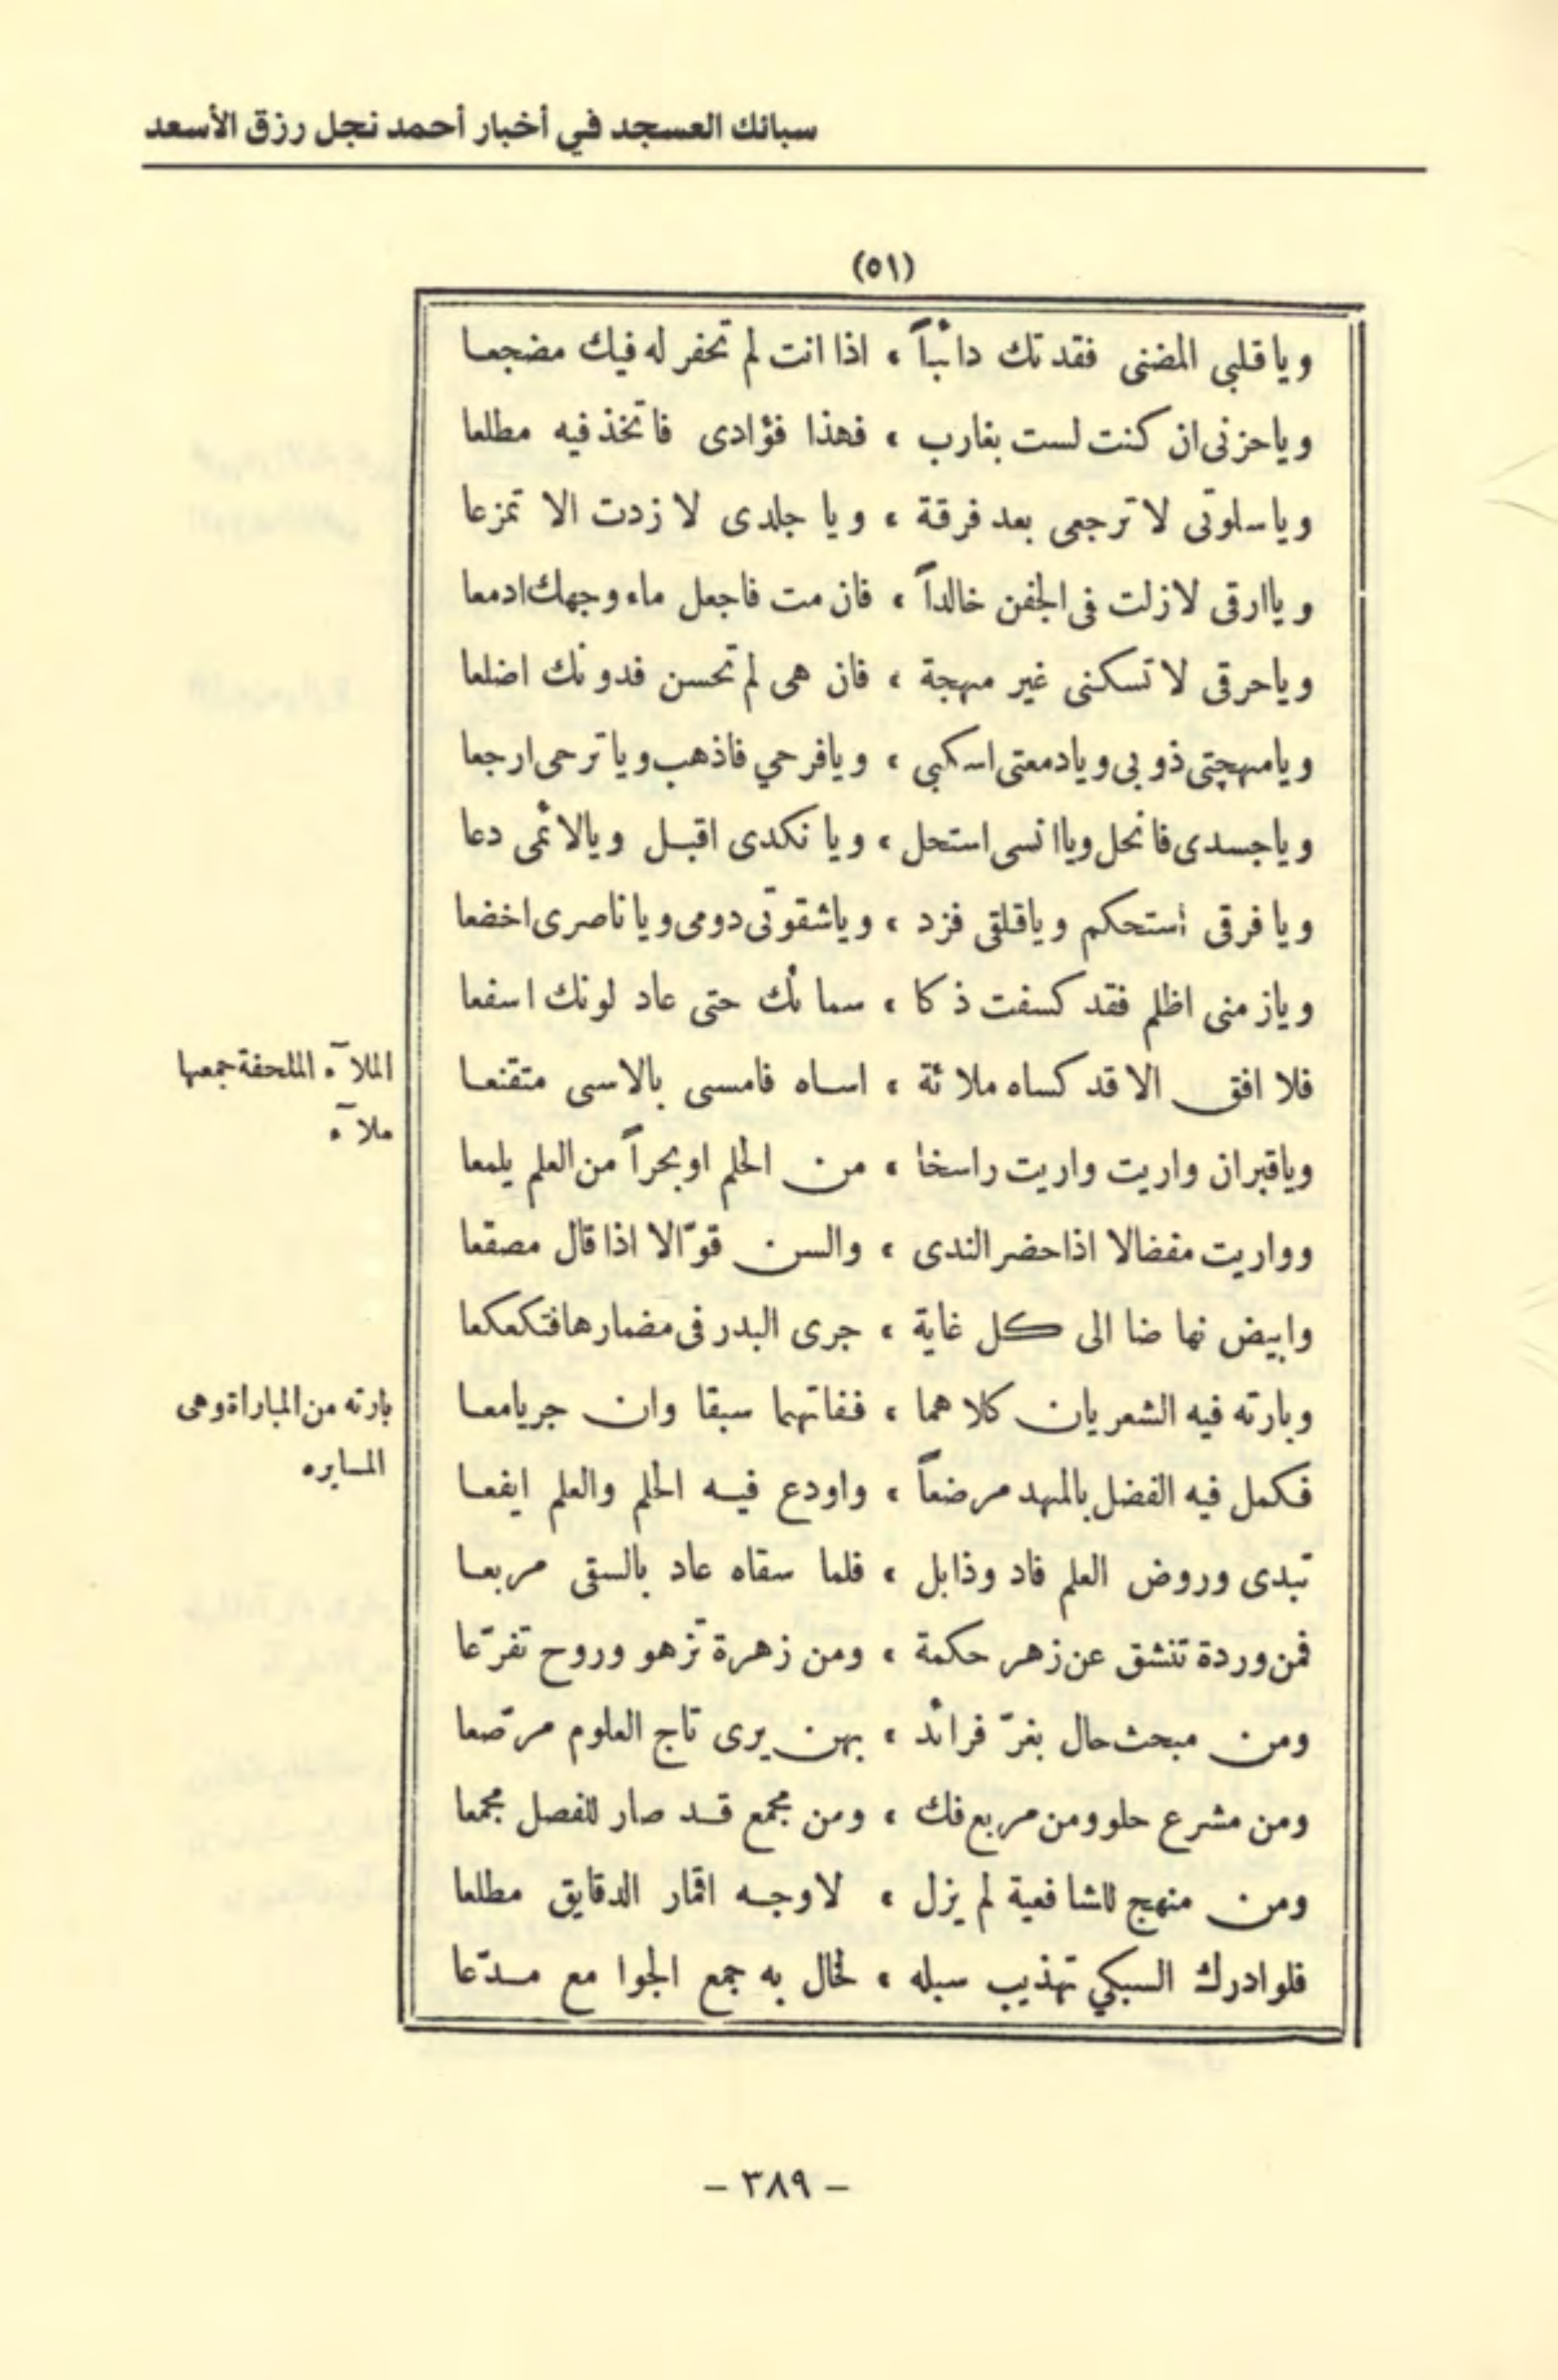 سبائك العسجد في أخبار أحمد نجل رزق الأسعد
(٥١)
وياقلبى المضنى فقدتك دائباً ، اذا انت لم تحفر له فيك مضجعا
وياحزنى ان كنت لست بغارب ، فهذا فؤادى فاتخذ فيه مطلعا
وياسلوتى لا ترجعى بعد فرقة ، ويا جلدى لا زدت الا تمزعا
وياارقى لازلت فى الجفن خالداً ، فان مت فاجعل ماء وجهك ادمعا
وياحرقى لا تسكنى غير مهجة ، فان هى لم تحسن فدونك اضلعا
ويامهجتى ذوبى ويادمعتى اسكبى ، ويافرحي فاذهب وياترحى ارجعا
وياجسدى فانحل وياانسى استحل ، ويا نكدى اقبل ويالائمى دعا
ويا فرقى أستحكم وياقلقى فزد ، وياشقوتى دومى ويا ناصرى اخضعا
ويازمنى اظلم فقد كسفت ذكا ، سمائك حتى عاد لونك اسفعا
فلا افق الا قد كساه ملائة ، اساه فامسى بالاسى متقنعا
الملآء الملحفة جمعها
ملآء
وياقبران واريت واريت راسخا ، من الحلم او بحراً من العلم يلمعا
وواريت مفضالا اذا حضر الندى ، والسن قوّالا اذا قال مصقعا
وابيض نهاضا الى كل غاية ، جرى البدر فى مضمارها فتكعكعا
وبارته فيه الشعريان كلاهما ، ففاتهما سبقا وان جريامعا
بارته من المباراة وهى
المسايره
فكمل فيه الفضل بالمهد مرضعاً ، واودع فيه الحلم والعلم ايفعا
تبدى وروض العلم فاد وذابل ، فلما سقاه عاد بالسقى مربعا
فمن وردة تنشق عن زهر حكمة ، ومن زهرة تزهو وروح تفرّعا
ومن مبحث حال بغرّ فرائد ، بهن يرى تاج العلوم مرصّعا
ومن مشرع حلو ومن مربع فك ، ومن مجمع قد صار للفصل مجمعا
ومن منهج للشافعية لم يزل ، لاوجه اقمار الدقايق مطلعا
فلو ادرك السبكي تهذيب سبله ، لخال به جمع الجوامع مدّعا
- ٣٨٩ -